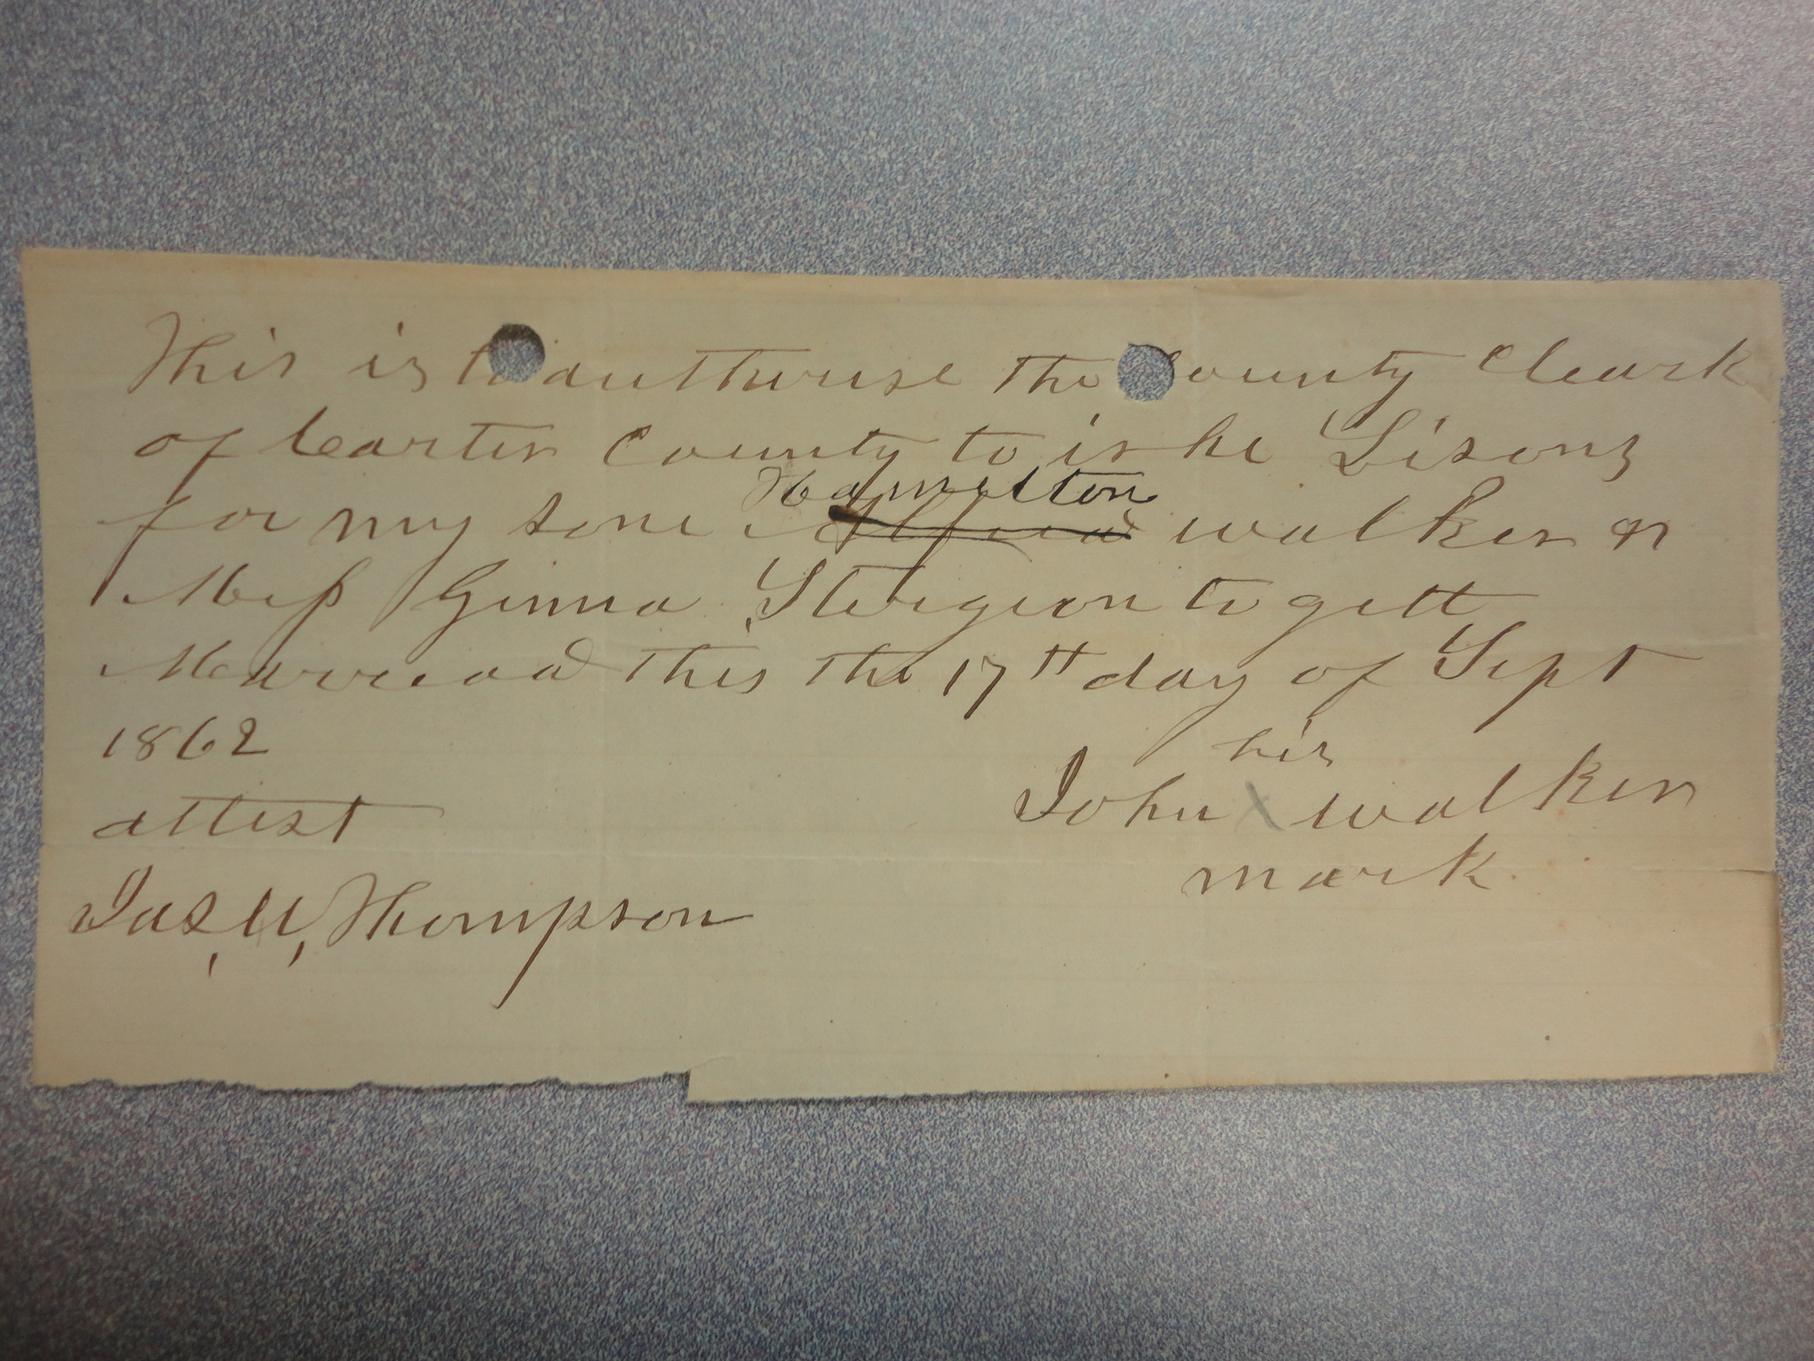 This is to authurise the County Cleark
of Carter County to ishe Lisons
for my sone Hamilton walker &
Miss Ginna Sturgeon to gett
Marriead this the 17th day of Sept
1862
his
John X walker
mark
attest
Jas, U, Thompson